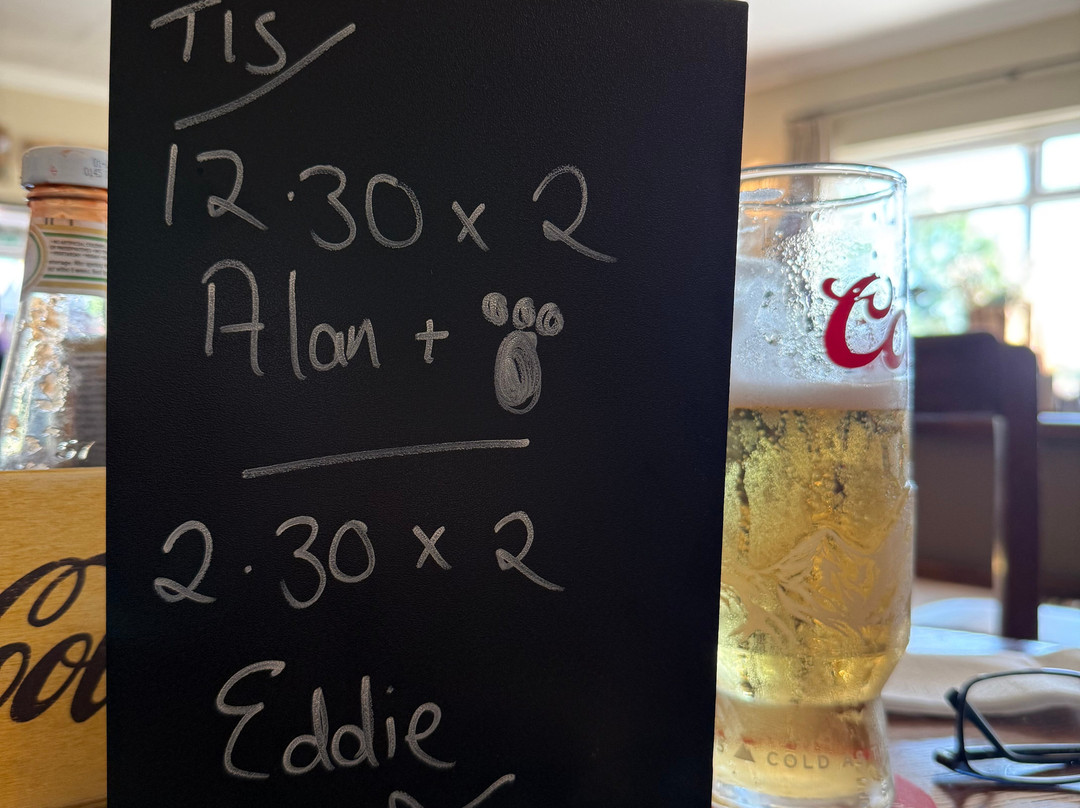 T15
12.30 x 2
Alan +
2.30 x 2
Eddie
Co
Coo
COLD A